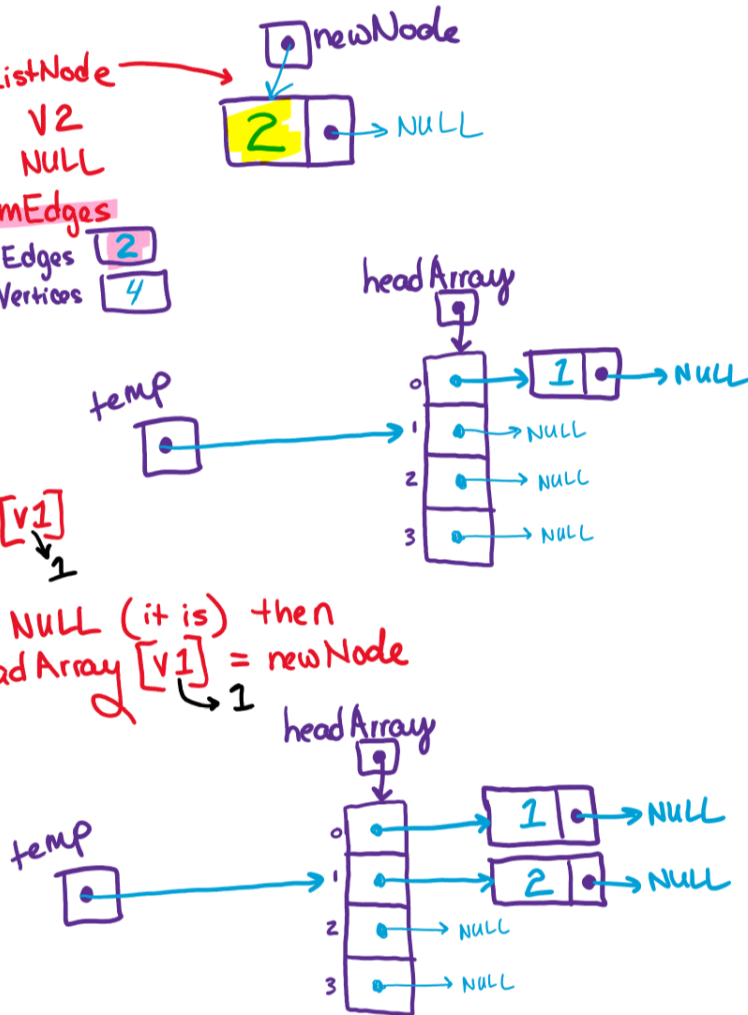 newNode
istNode
2
NULL
V2
NULL
mEdges
Edges 2
Vertices 4
headArray
0 1 NULL
temp
1 NULL
2 NULL
3 NULL
[v1]
1
NULL (it is) then
adArray [v1] = newNode
1
headArray
0 1 NULL
temp
1 2 NULL
2 NULL
3 NULL